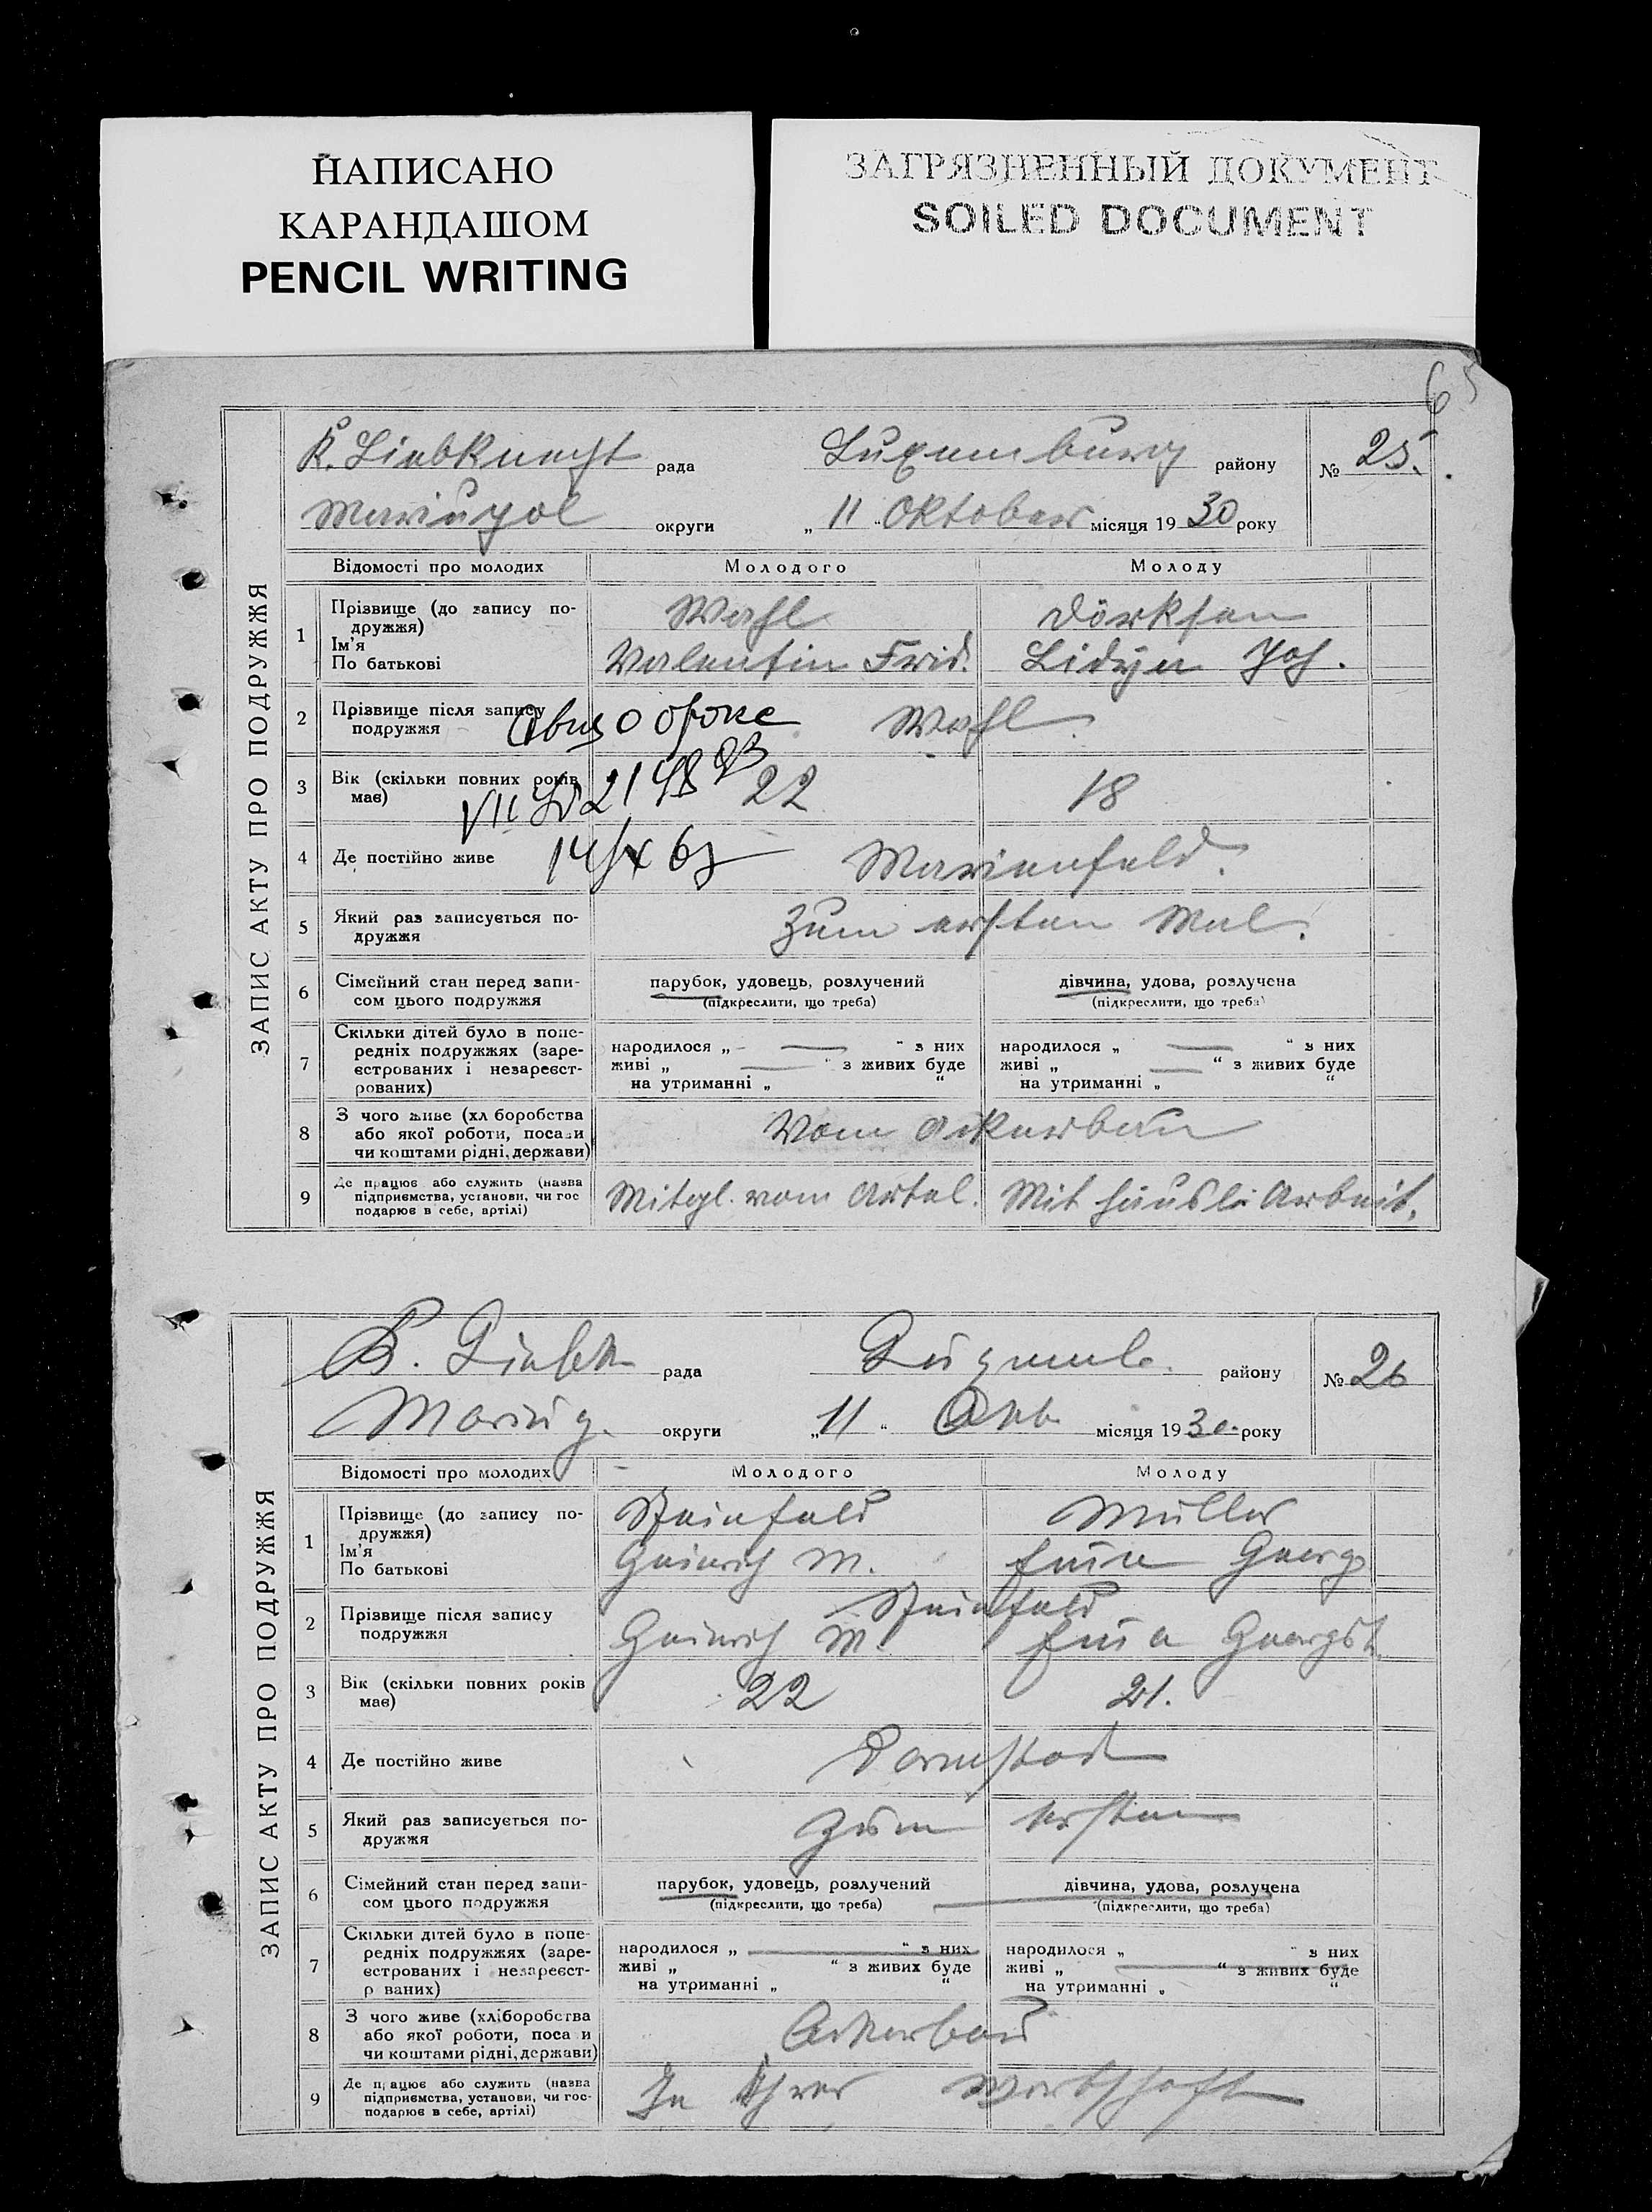 НАПИСАНО
КАРАНДАШОМ
PENCIL WRITING
ЗАГРЯЗНЕННЫЙ ДОКУМЕНТ
SOILED DOCUMENT
65
ЗАПИС АКТУ ПРО ПОДРУЖЖЯ
K. Liebknecht рада Luxemburg району № 25.
Mariupol округи „ 11 “ Oktober місяця 19 30 року
Відомості про молодих Молодого Молоду
1 Прізвище (до запису по-
дружжя) Wahl Dörksen
Ім'я
По батькові Valentin Frid. Lidija Joh.
2 Прізвище після запису
подружжя Wahl
3 Вік (скільки повних років
має) 22 18
4 Де постійно живе Marienfeld.
5 Який раз записується по-
дружжя Zum ersten Mal.
6 Сімейний стан перед запи-
сом цього подружжя
парубок, удовець, розлучений
(підкреслити, що треба)
дівчина, удова, розлучена
(підкреслити, що треба)
7 Скільки дітей було в попе-
редніх подружжях (заре-
єстрованих і незареєст-
рованих)
народилося „ — “ з них
живі „ — “ з живих буде
на утриманні „ “
народилося „ — “ з них
живі „ — “ з живих буде
на утриманні „ “
8 З чого живе (хл боробства
або якої роботи, посади
чи коштами рідні, держави) Vom Ackerbau
9 Де працює або служить (назва
підприємства, установи, чи гос
подарює в себе, артілі) Mitgl. vom Artel. Mit häusli Arbeit.
ЗАПИС АКТУ ПРО ПОДРУЖЖЯ
K. Liebk рада Luxemb. району № 26
Mariup. округи „ 11 “ Okb. місяця 19 30. року
Відомості про молодих Молодого Молоду
1 Прізвище (до запису по-
дружжя) Steinfeld Müller
Ім'я
По батькові Heinrich M. Georg
2 Прізвище після запису
подружжя Steinfeld
Heinrich M.
3 Вік (скільки повних років
має) 22 21.
4 Де постійно живе Darmstad
5 Який раз записується по-
дружжя Zum ersten
6 Сімейний стан перед запи-
сом цього подружжя
парубок, удовець, розлучений
(підкреслити, що треба)
дівчина, удова, розлучена
(підкреслити, що треба)
7 Скільки дітей було в попе-
редніх подружжях (заре-
єстрованих і незареєст-
р ваних)
народилося „ “ з них
живі „ “ з живих буде
на утриманні „ “
народилося „ “ з них
живі „ “ з живих буде
на утриманні „ “
8 З чого живе (хліборобства
або якої роботи, поса и
чи коштами рідні, держави) Ackerbau
9 Де працює або служить (назва
підприємства, установи, чи гос-
подарює в себе, артілі) In Ihrer Wirtschaft